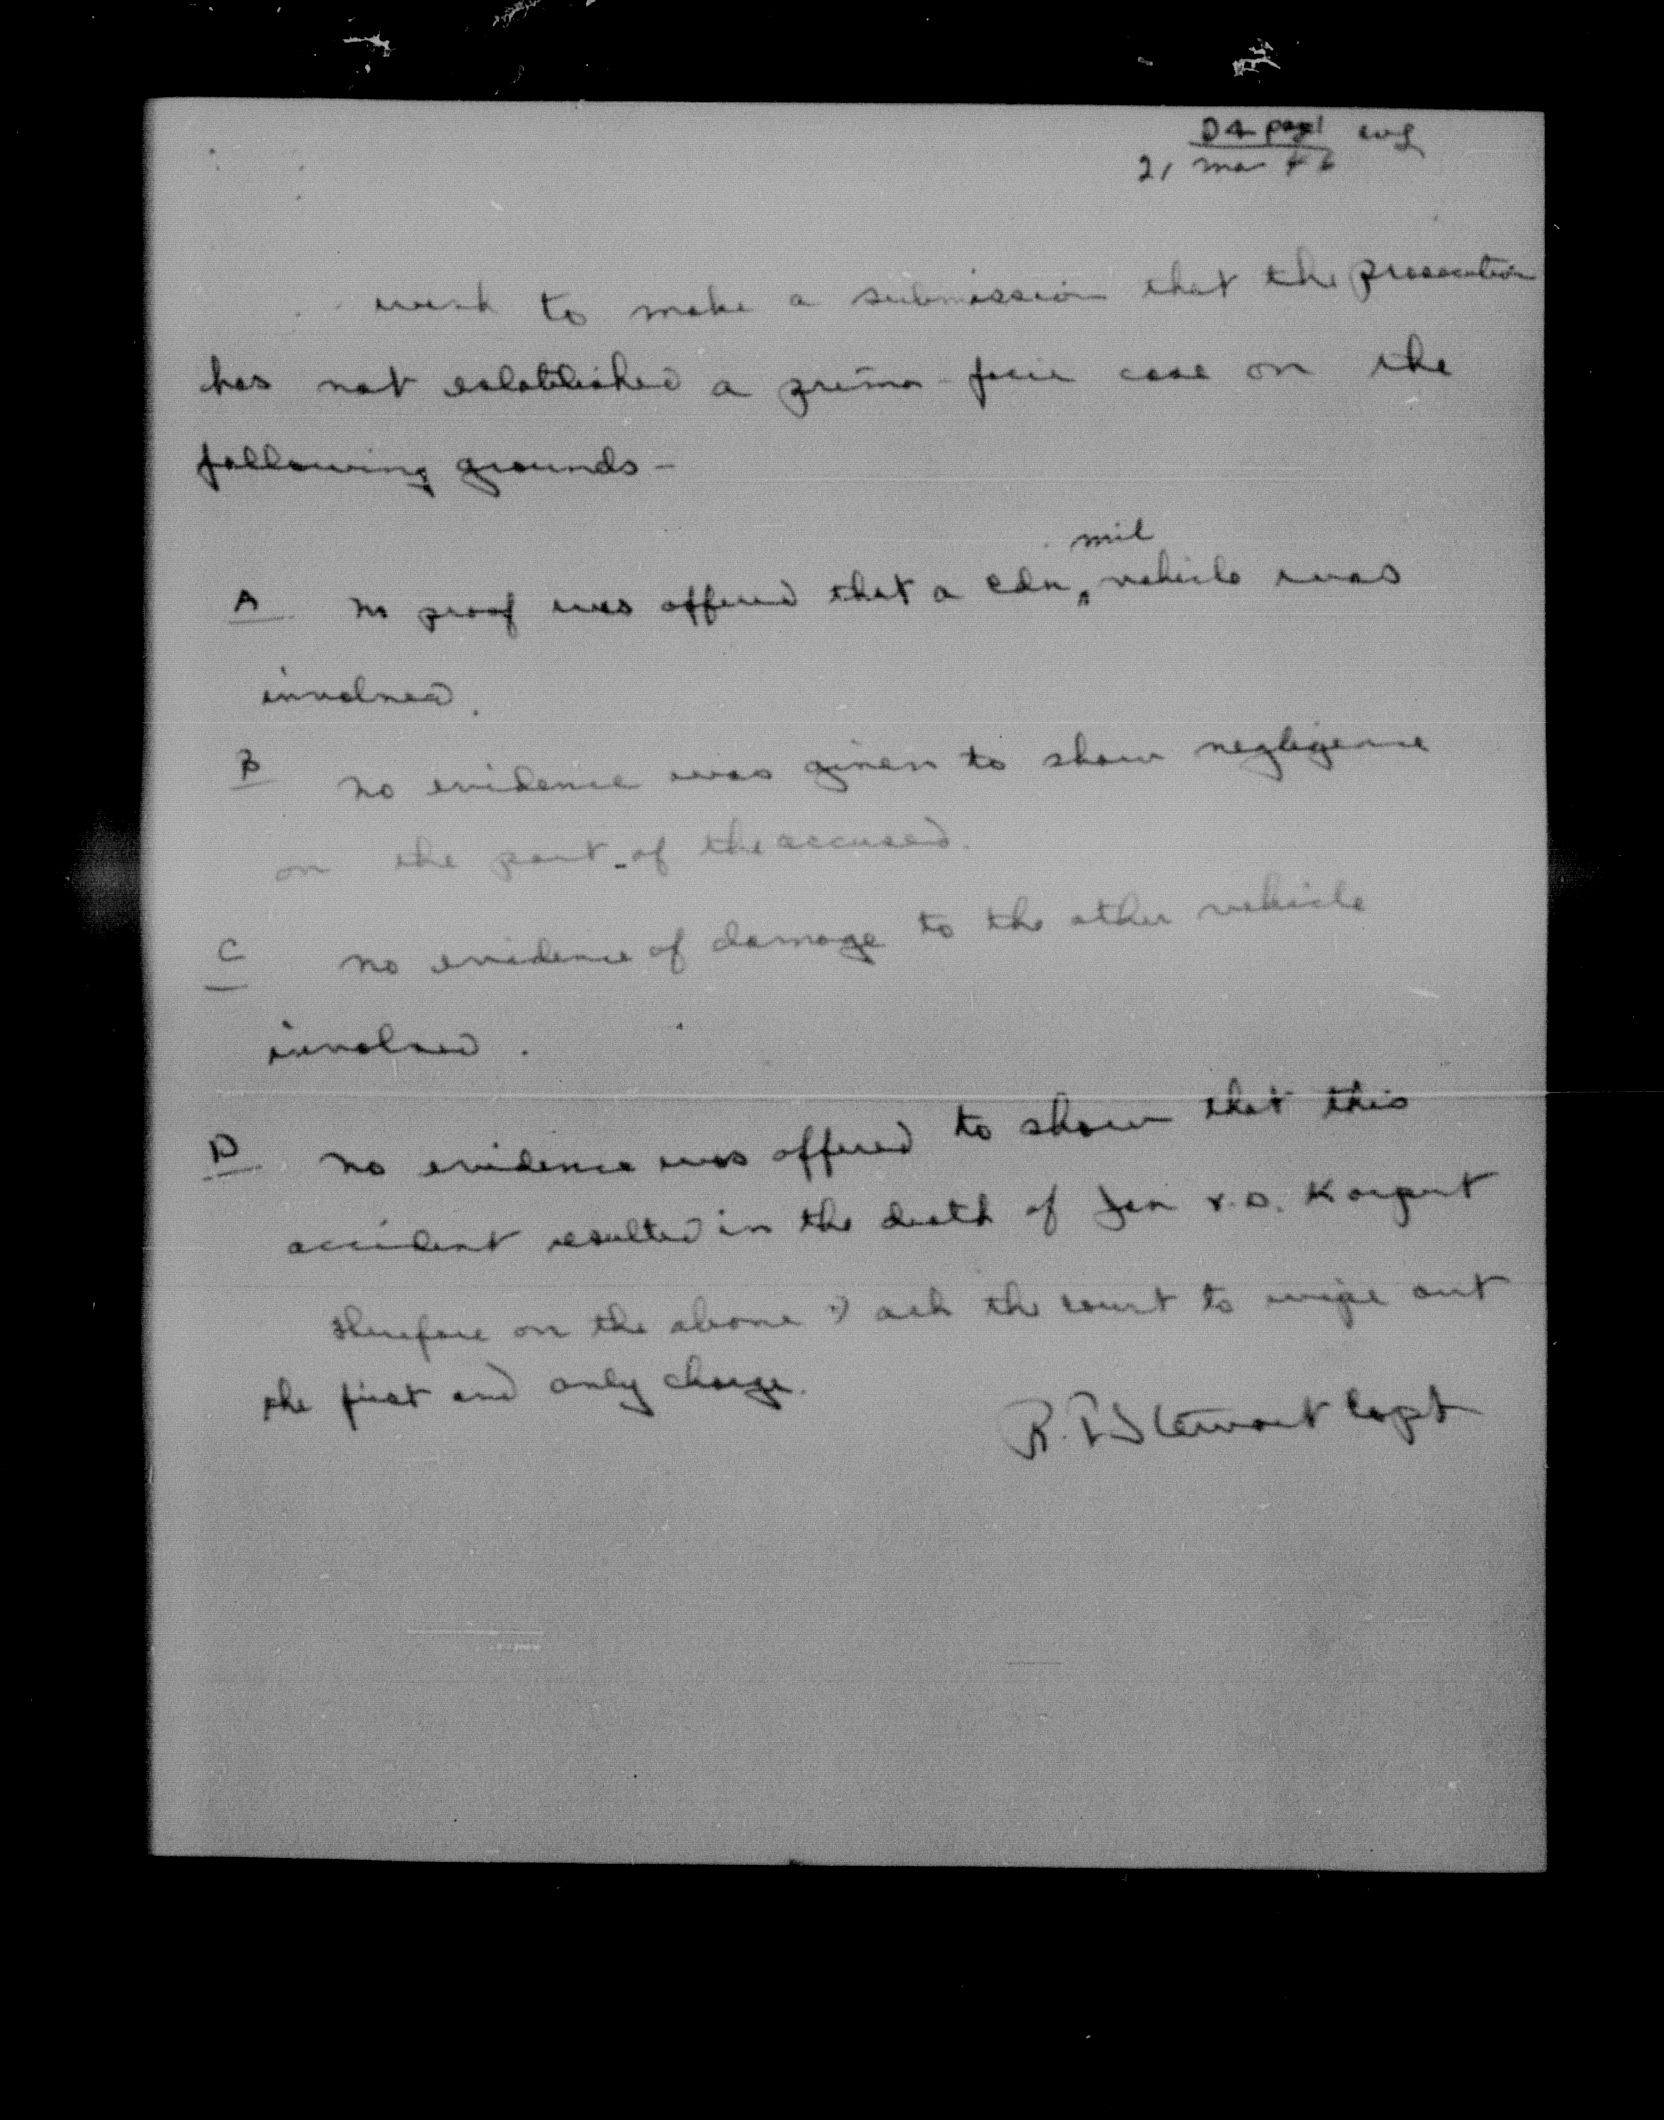 D4 page 1
21 Mar 46
wish to make a submission that the prosecution
has not established a prima-facie case on the
following grounds-
mil
A no proof was offered that a Cdn ^ vehicle was
involved.
B No evidence was given to show negligence
on the part of the accused.
C No evidence of damage to the other vehicle
involved.
D No evidence was offered to show that this
accident resulted in the death of Jan v.d. Korput
therefore on the above I ask the court to wipe out
the first and only charge.
R. T. Stewart Capt